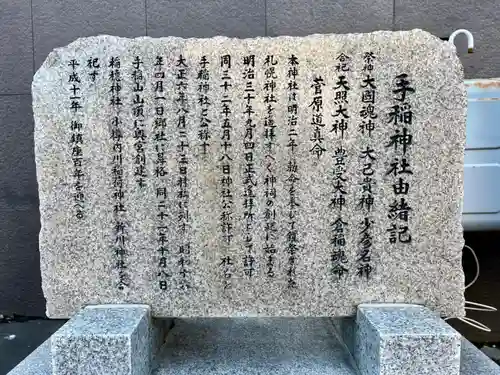 手稲神社由緒記
祭神 大國魂神 大己貴神 少彦名神
合祀 天照大神 豊受大神 倉稲魂命
菅原道真命
本神社は明治二年 勅命を奉じて
札幌神社を遥拝すべく神祠の創祀に始まる
明治三十年九月四日正式遥拝所として許可
同三十二年五月十八日神社公称許可
手稲神社と公称す
大正六年六月二十三日村社に列す 昭和十八
年四月一日郷社に昇格 同二十一年十月八日
手稲山山頂に奥宮創建す
稲穂神社 小樽内川稲荷神社 軽川神社を合
祀す
平成十一年 御鎮座百年を迎へる